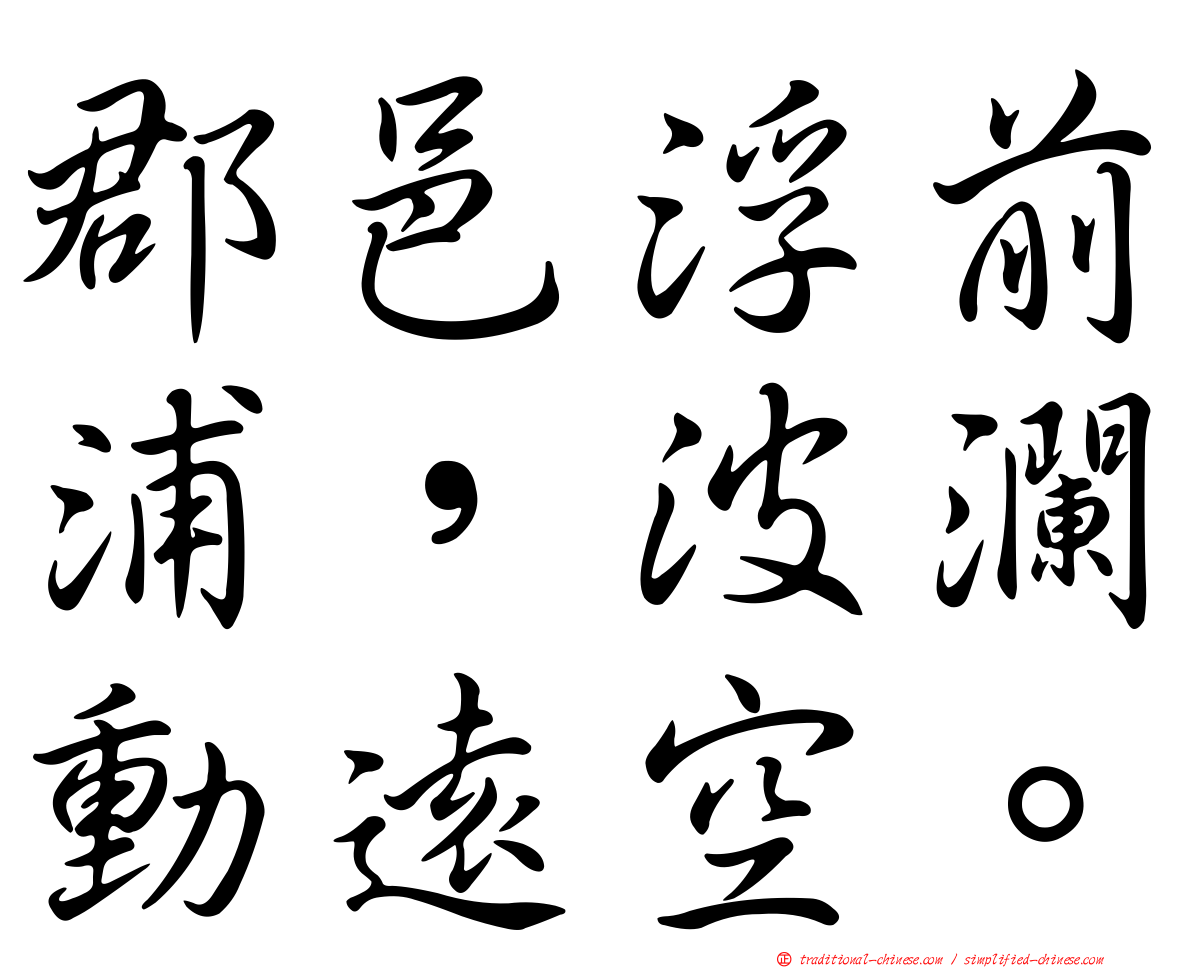 郡邑浮前
浦，波瀾
動遠空。
㊣ traditional-chinese.com / simplified-chinese.com